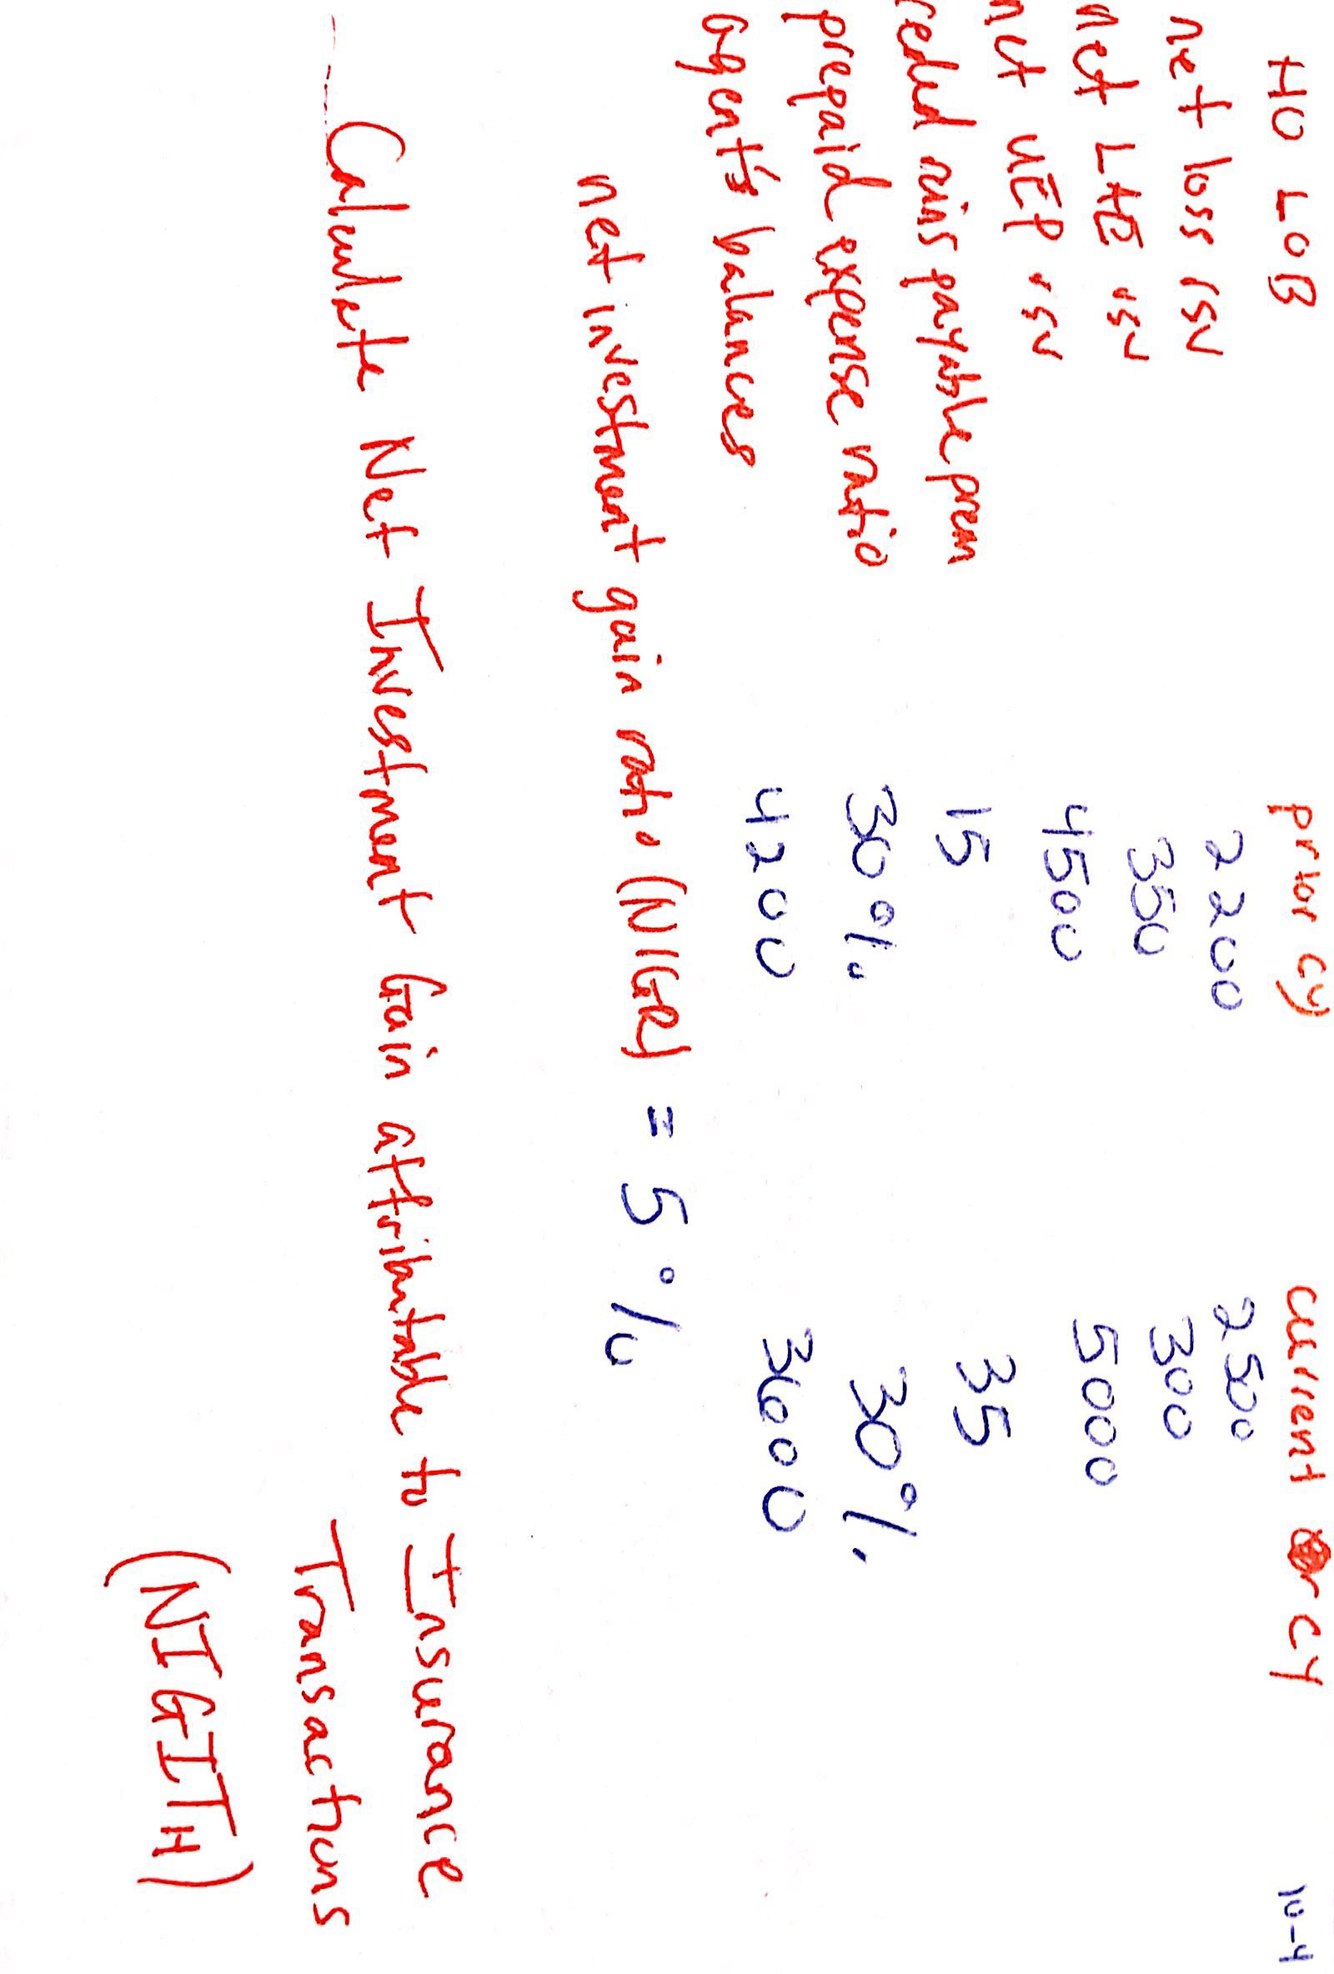 10-4
HO LOB prior cy current cy
net loss rsv 2200 2500
net LAE rsv 350 300
net UEP rsv 4500 5000
ceded reins payable prem 15 35
prepaid expense ratio 30% 30%
agent's balances 4200 3600
net investment gain ratio (NIGR) = 5%
Calculate Net Investment Gain attributable to Insurance
Transactions
(NIGITH)